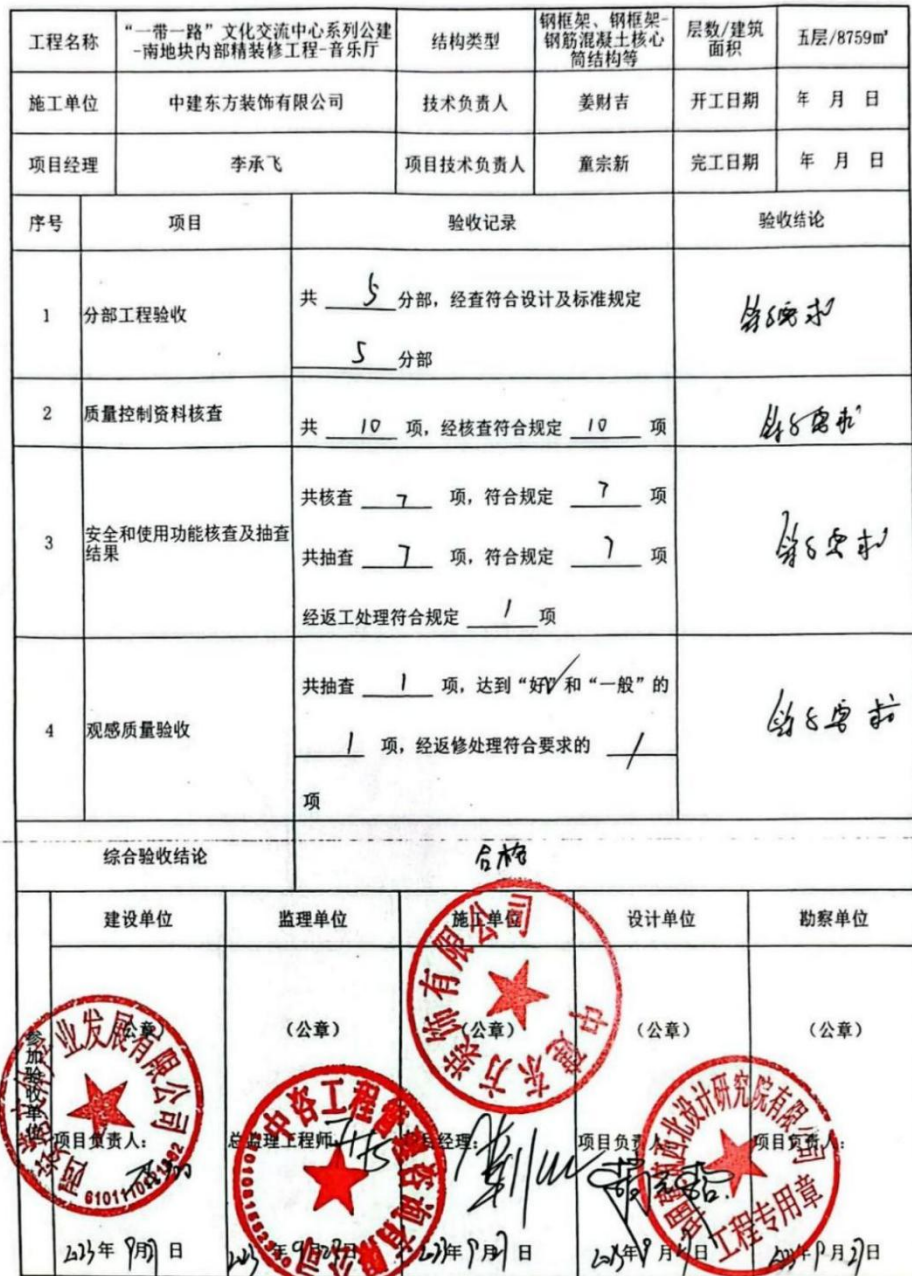 工程名称
“一带一路”文化交流中心系列公建
-南地块内部精装修工程-音乐厅
结构类型
钢框架、钢框架-
钢筋混凝土核心
筒结构等
层数/建筑
面积
五层/8759㎡
施工单位
中建东方装饰有限公司
技术负责人
姜财吉
开工日期
年 月 日
项目经理
李承飞
项目技术负责人
童宗新
完工日期
年 月 日
序号
项目
验收记录
验收结论
1
分部工程验收
共 5 分部，经查符合设计及标准规定
5 分部
符合要求
2
质量控制资料核查
共 10 项，经核查符合规定 10 项
符合要求
3
安全和使用功能核查及抽查
结果
共核查 7 项，符合规定 7 项
共抽查 7 项，符合规定 7 项
经返工处理符合规定 / 项
符合要求
4
观感质量验收
共抽查 1 项，达到“好”和“一般”的
1 项，经返修处理符合要求的 /
项
符合要求
综合验收结论
合格
参加验收单位
建设单位
监理单位
施工单位
设计单位
勘察单位
（公章）
（公章）
（公章）
（公章）
（公章）
项目负责人：
总监理工程师：
项目经理：
项目负责人：
项目负责人：
业发展有限公司
中咨工程
中建东方装饰有限公司
西北设计研究院有限公司
工程专用章